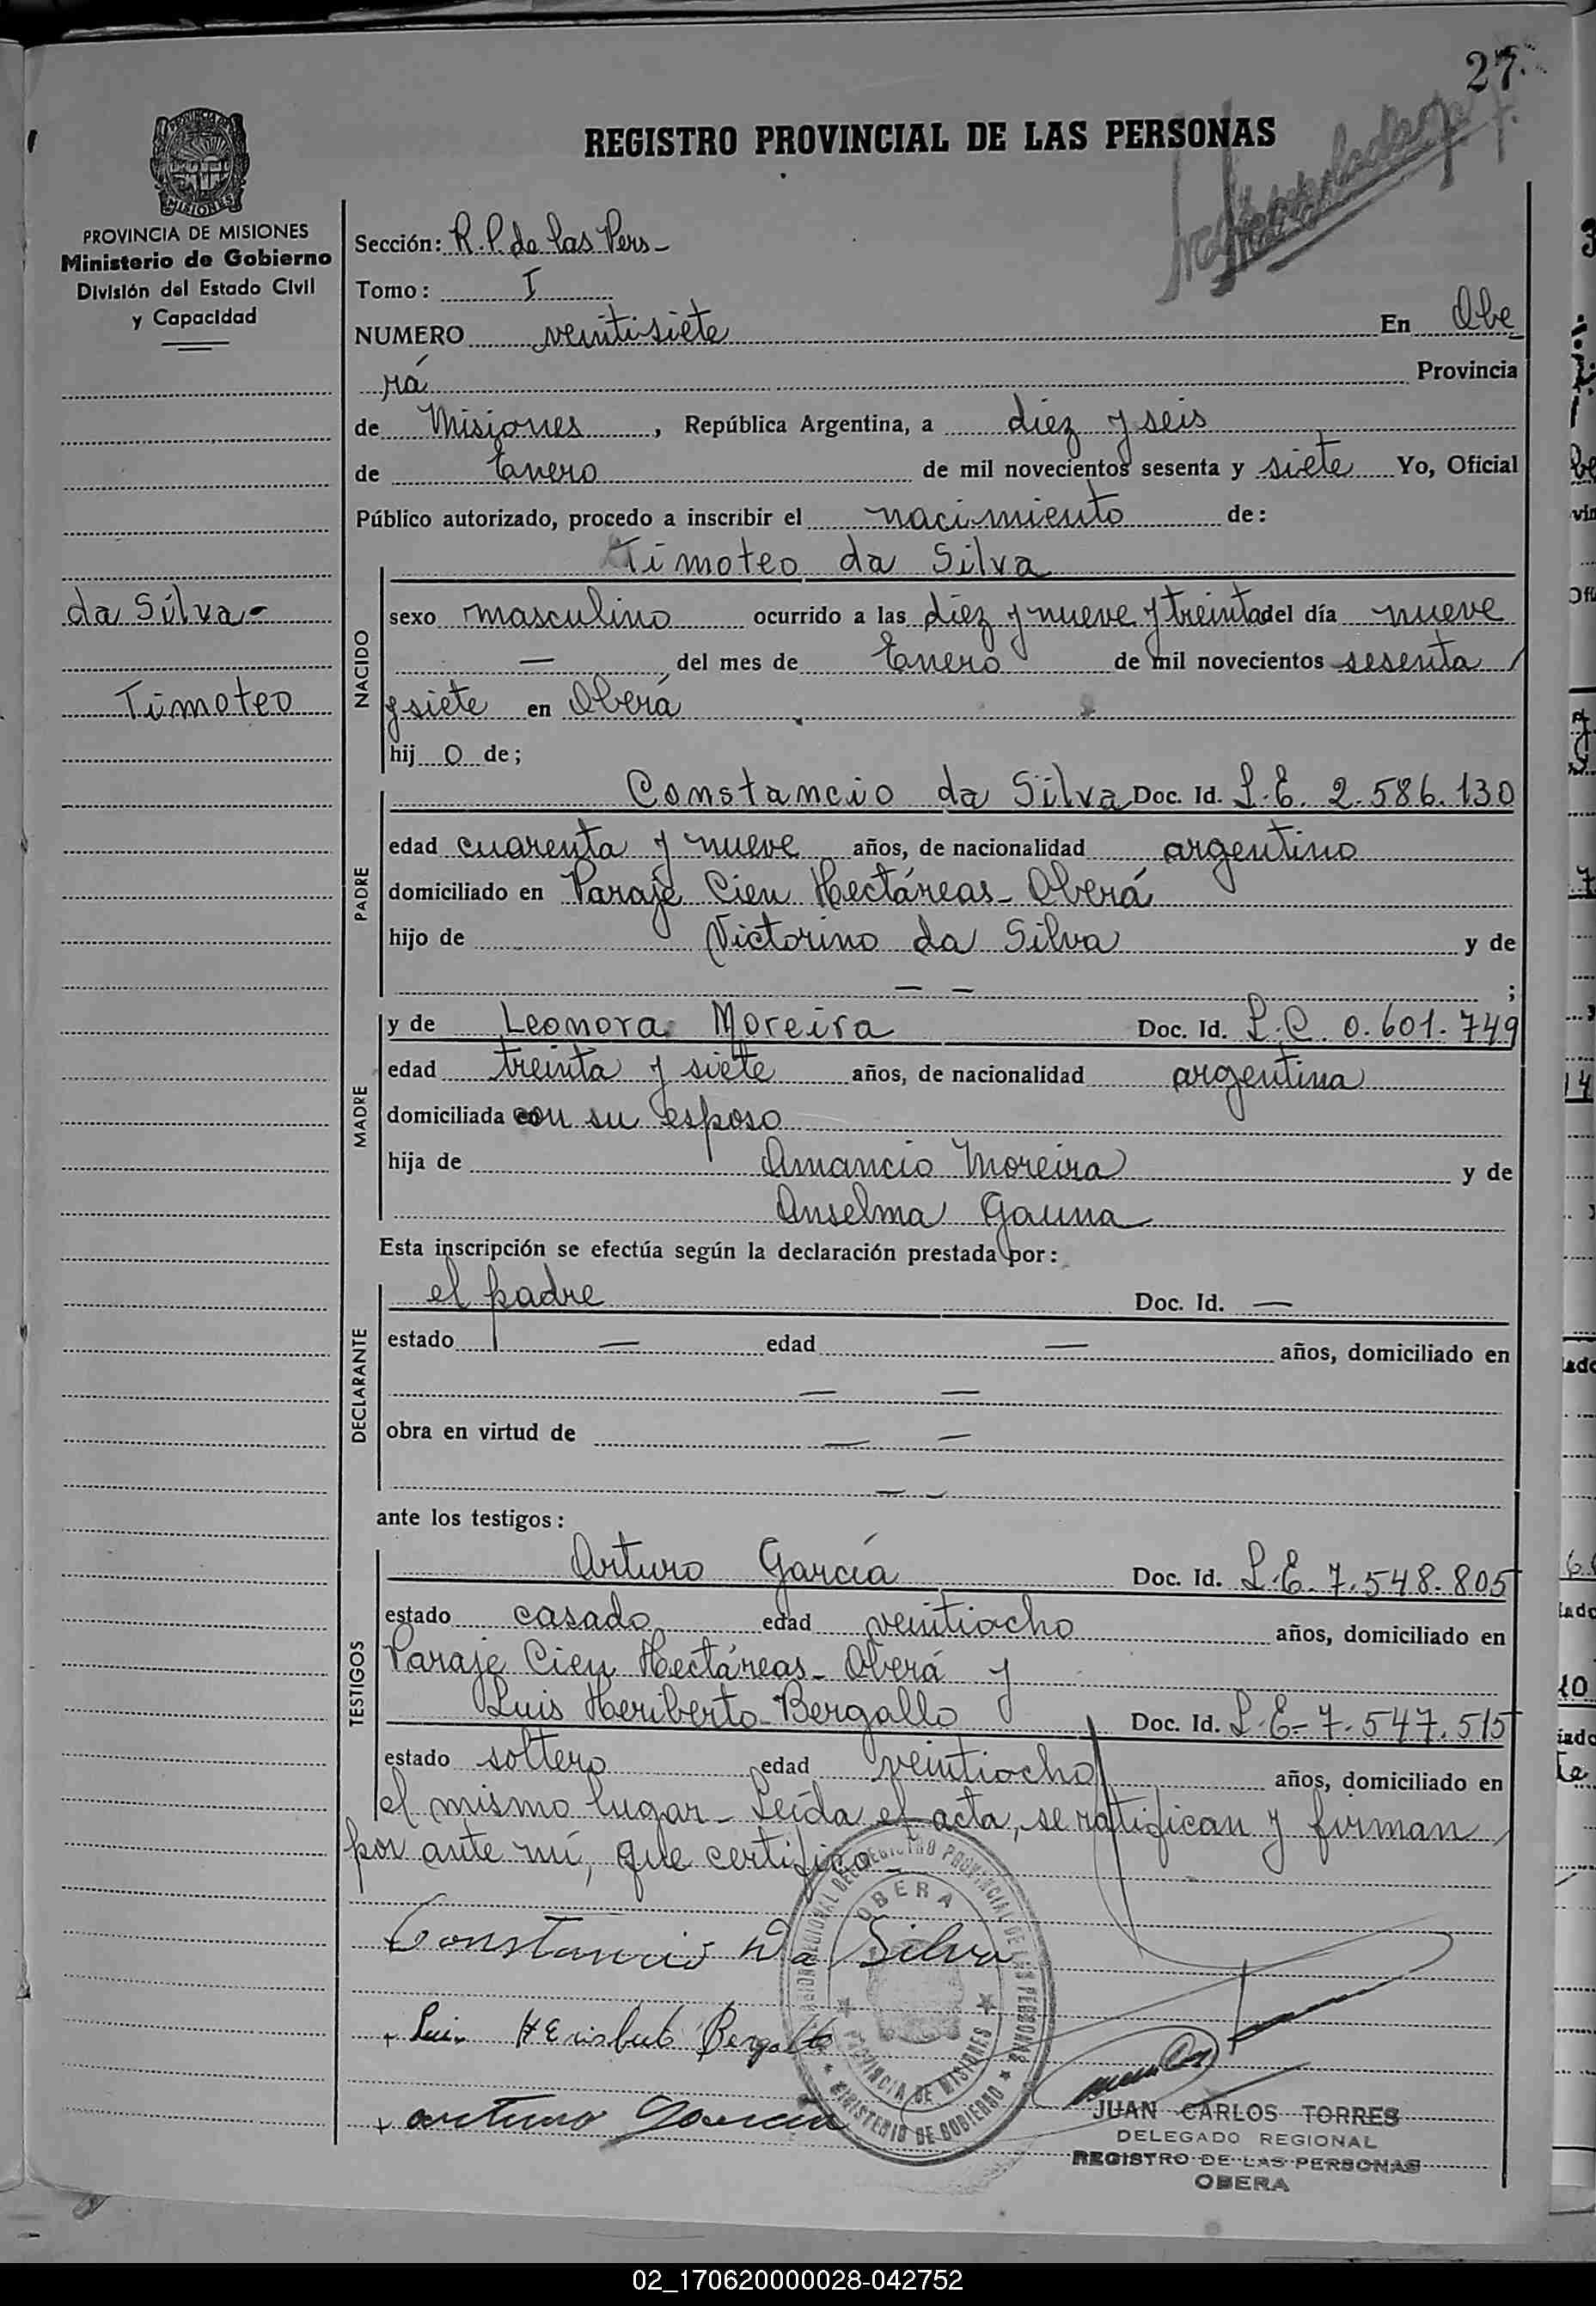 27
REGISTRO PROVINCIAL DE LAS PERSONAS
PROVINCIA DE MISIONES
Ministerio de Gobierno
División del Estado Civil
y Capacidad
Sección: R.P. de las Pers-
Tomo: I
NUMERO veintisiete En Obe
rá Provincia
de Misiones, República Argentina, a diez y seis
de Enero de mil novecientos sesenta y siete Yo, Oficial
Público autorizado, procedo a inscribir el nacimiento de:
da Silva-
Timoteo
NACIDO
Timoteo da Silva
sexo masculino ocurrido a las diez y nueve y treinta del día nueve
— del mes de Enero de mil novecientos sesenta
y siete en Oberá
hij o de;
PADRE
Constancio da Silva Doc. Id. L.E. 2.586.130
edad cuarenta y nueve años, de nacionalidad argentino
domiciliado en Paraje Cien Hectáreas- Oberá
hijo de Victorino da Silva y de
— — ;
MADRE
y de Leonora Moreira Doc. Id. L.C. 0.601.749
edad treinta y siete años, de nacionalidad argentina
domiciliada con su esposo
hija de Amancio Moreira y de
Anselma Gauna
Esta inscripción se efectúa según la declaración prestada por:
DECLARANTE
el padre Doc. Id. —
estado — edad — años, domiciliado en
— —
obra en virtud de — —
— —
ante los testigos:
TESTIGOS
Arturo García Doc. Id. L.E. 7.548.805
estado casado edad veintiocho años, domiciliado en
Paraje Cien Hectáreas- Oberá y
Luis Heriberto Bergallo Doc. Id. L.E- 7.547.515
estado soltero edad veintiocho años, domiciliado en
el mismo lugar- Leída el acta, se ratifican y firman
por ante mí, que certifico-
Constancio Da Silva
Luis Heriberto Bergallo
Arturo Garcia
OBERA
PROVINCIA DE MISIONES
MINISTERIO DE GOBIERNO
JUAN CARLOS TORRES
DELEGADO REGIONAL
REGISTRO DE LAS PERSONAS
OBERA
02_170620000028-042752